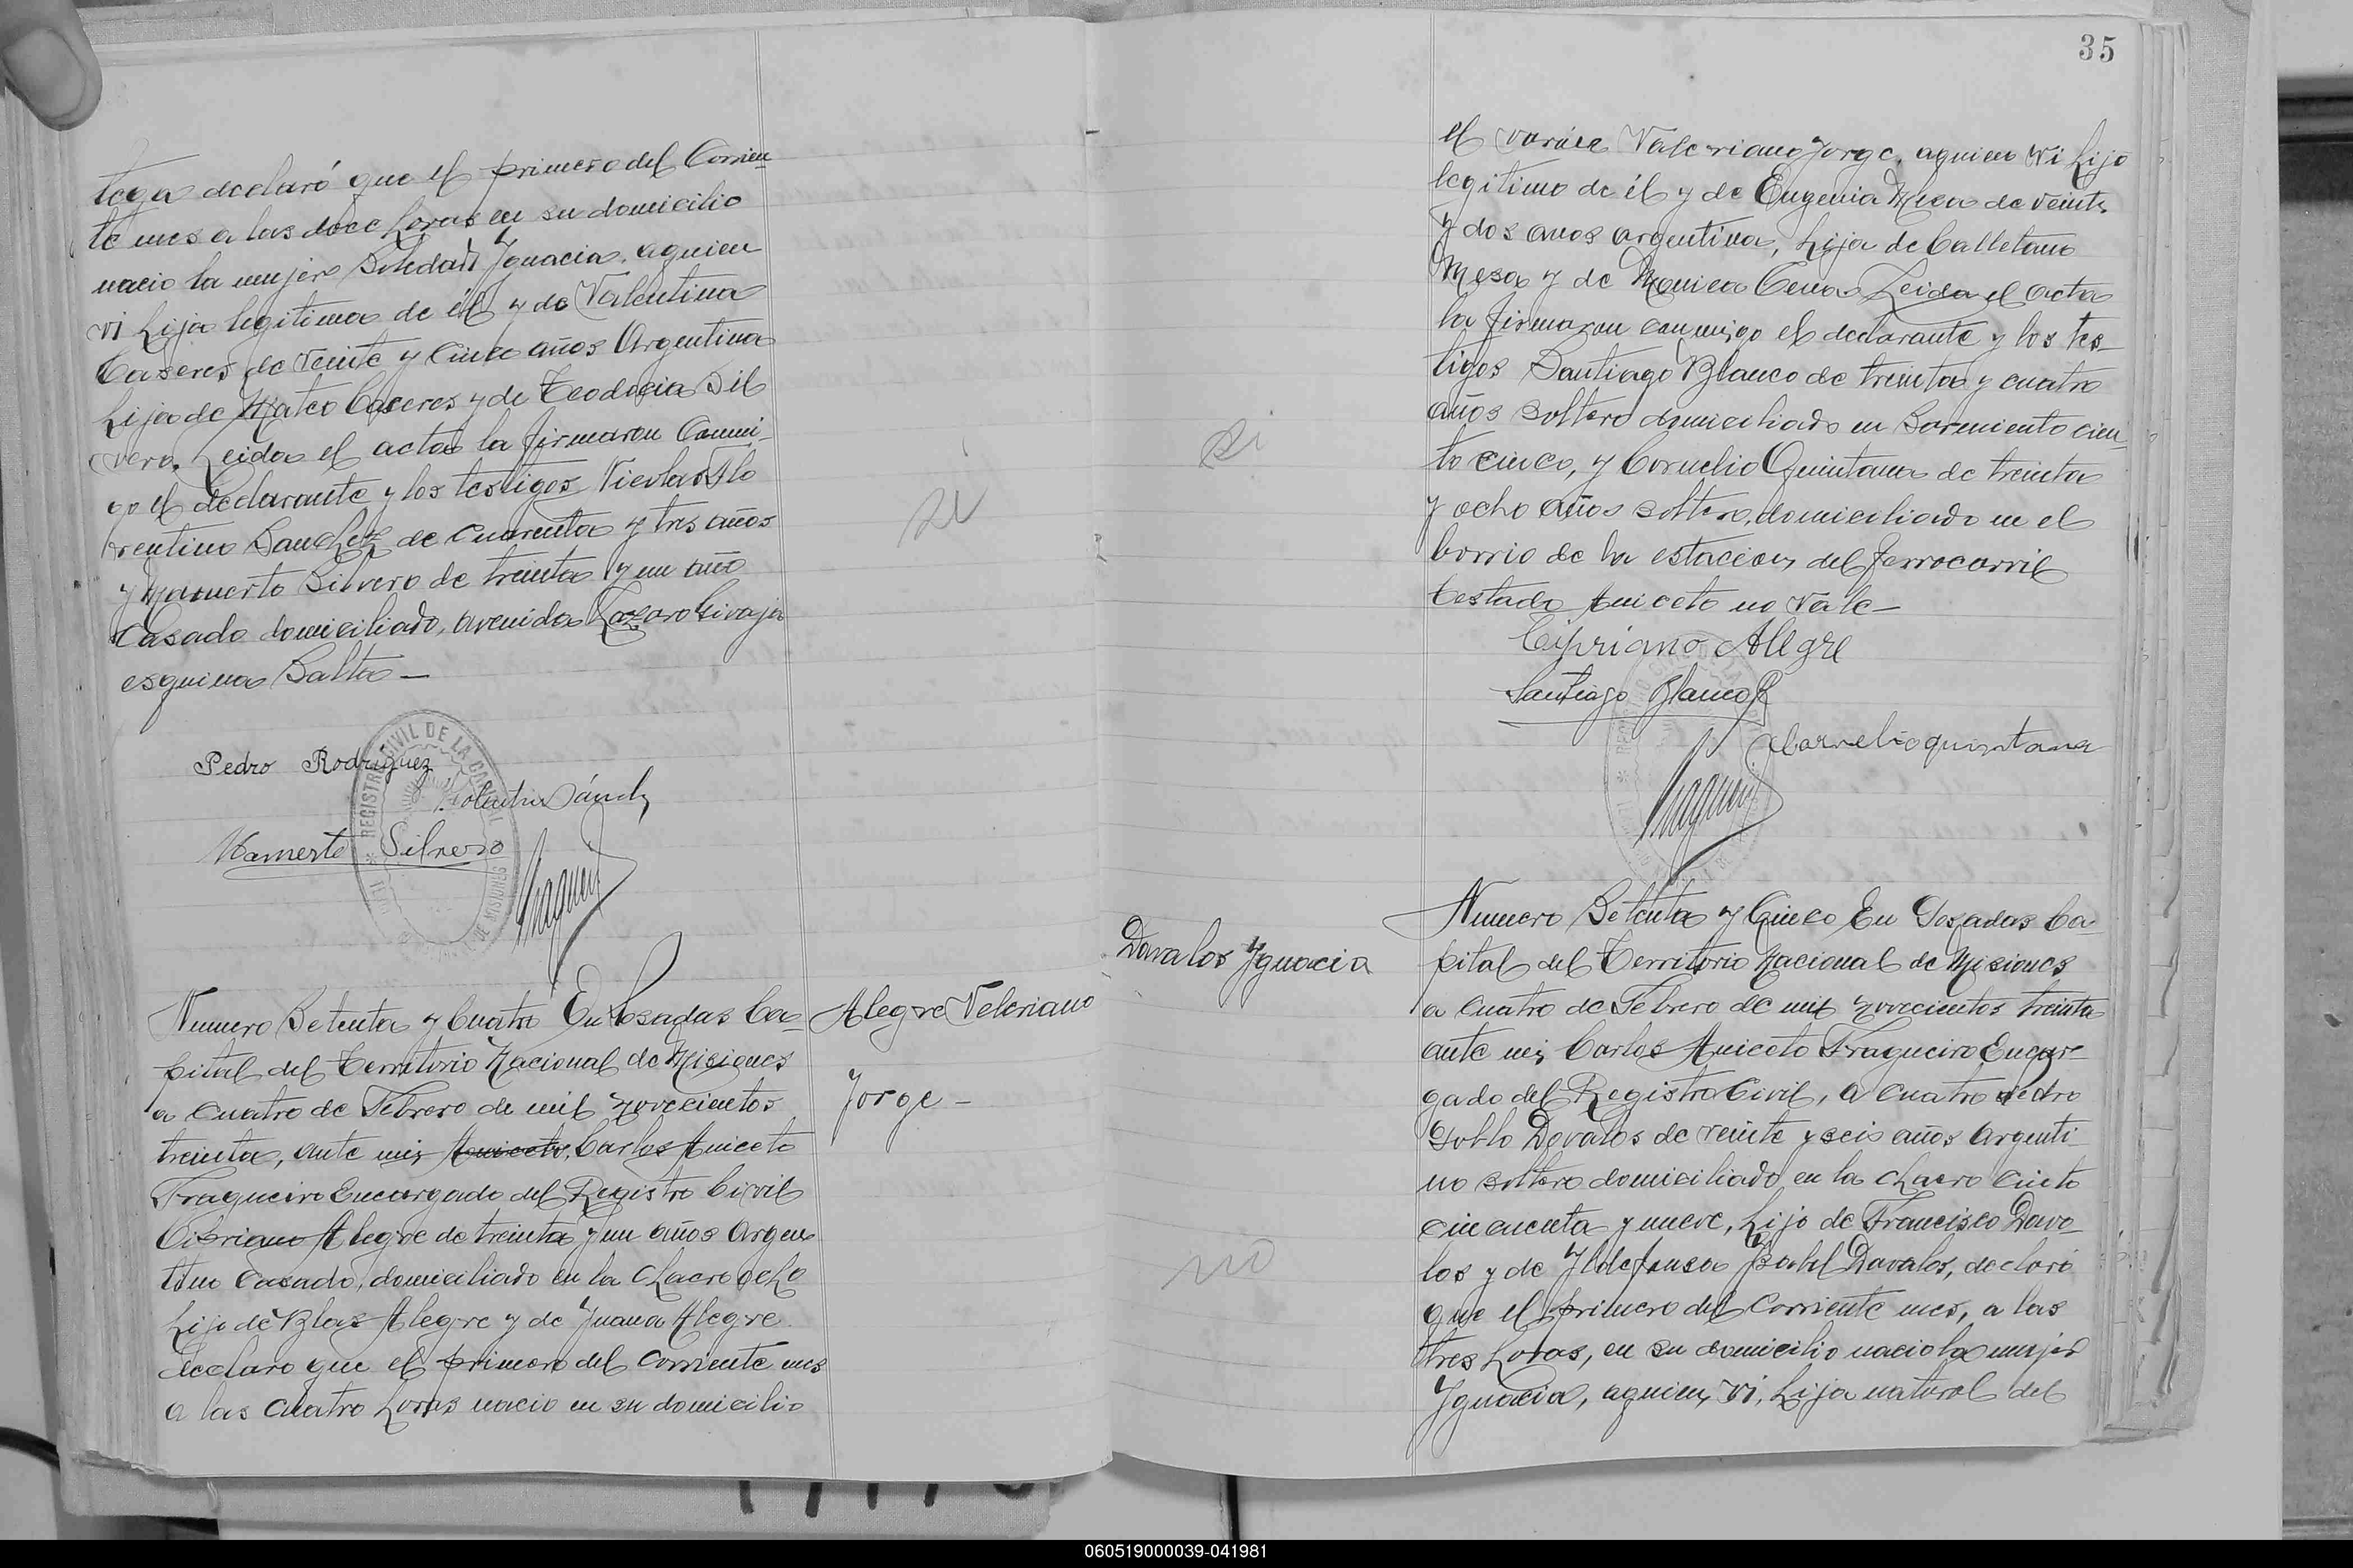 tega declaró que el primero del Corrien
te mes a las doce horas en su domicilio
nacio la mujer Soledad Ygnacia, aquien
vi hija legitima de él y de Valentina
Caseres de veinte y cinco años Argentina
hija de Mateo Caseres y de Teodocia Sil
vero. Leida el acta la firmaron Conmi
go el declarante y los testigos Nicolas Flo
rentino Sanchez de cuarenta y tres años
y Mamerto Silvero de treinta y un año
Casado domiciliado, avenida Lazaro Givaja
esquina Salta —
Pedro Rodriguez
Mamerto Silvero
REGISTRO CIVIL DE LA CAPITAL
DE MISIONES
si
Numero Setenta y Cuatro En Posadas Ca-
pital del Territorio Nacional de Misiones
a cuatro de Febrero de mil novecientos
treinta, ante mi, Aniceto, Carlos Aniceto
Fragueiro Encargado del Registro Civil
Cipriano Alegre de treinta y un años Argen
tino Casado, domiciliado en la chacra ocho
hijo de Blas Alegre y de Juana Alegre.
declaro que el primero del corriente mes
a las cuatro horas nacio en su domicilio
Alegre Veleriano
Jorge -
35
el varón Valeriano Jorge, aquien vi hijo
legitimo de él y de Eugenia Mesa de veinte
y dos anos argentina, hija de Calletano
Mesa y de Monica Cena. Leida el acta
la firmaron conmigo el declarante y los tes-
tigos Santiago Blanco de treinta y cuatro
años soltero domiciliado en Sarmiento cien
to cinco, y Cornelio Quintana de treinta
y ocho años soltero, domiciliado en el
barrio de la estacion del ferrocarril
testado Aniceto no vale —
Cipriano Alegre
Santiago Blanco
Cornelio quintana
si
Davalos Ygnacia
Numero Setenta y Cinco En Posadas Ca-
pital del Territorio Nacional de Misiones
a cuatro de Febrero de mil novecientos treinta
ante mi, Carlos Aniceto Fragueiro Encar-
gado del Registro Civil, a cuatro Pedro
Pablo Davalos de veinte y seis años Argenti
no soltero domiciliado en la chacra ciento
cincuenta y nueve, hijo de Francisco Dava-
los y de Yldefonsa Isabel Davalos, declaró
que el primero del corriente mes, a las
tres horas, en su domicilio nacio la mujer
Ygnacia, aquien, vi, hija natural del
no
060519000039-041981